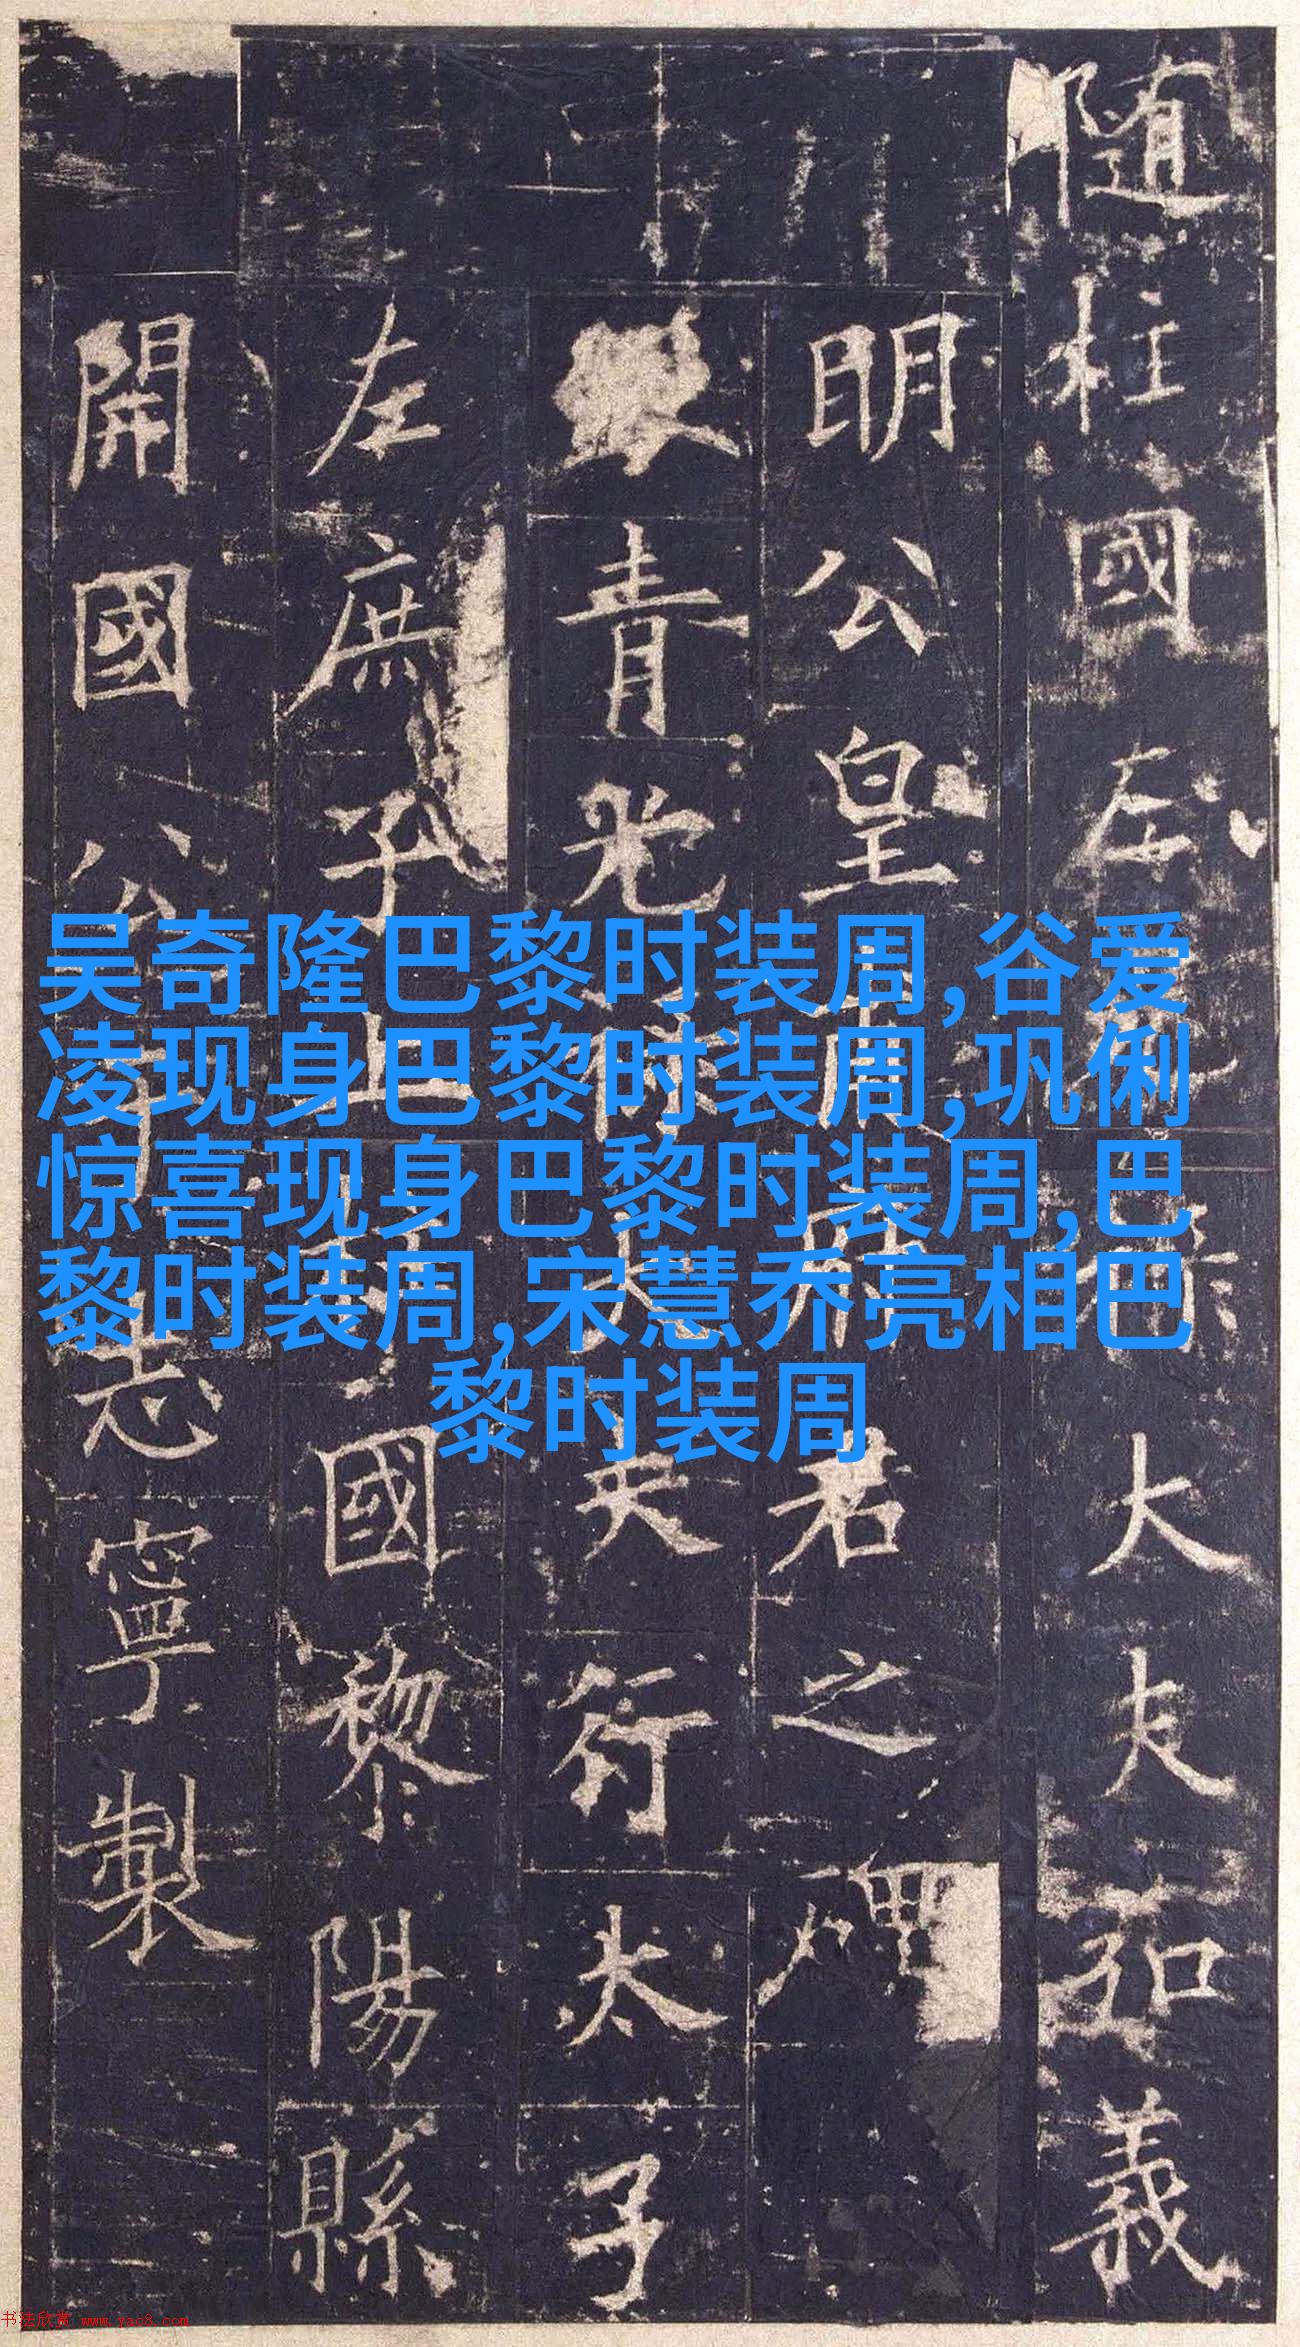 隨柱國左光祿大夫弘義
明公皇甫府君之碑
銀青光祿大夫行太子
左庶子上柱國黎陽縣
開國公于志寧製
吴奇隆巴黎时装周,谷爱
凌现身巴黎时装周,巩俐
惊喜现身巴黎时装周,巴
黎时装周,宋慧乔亮相巴
黎时装周
书法欣赏 www.yac8.com